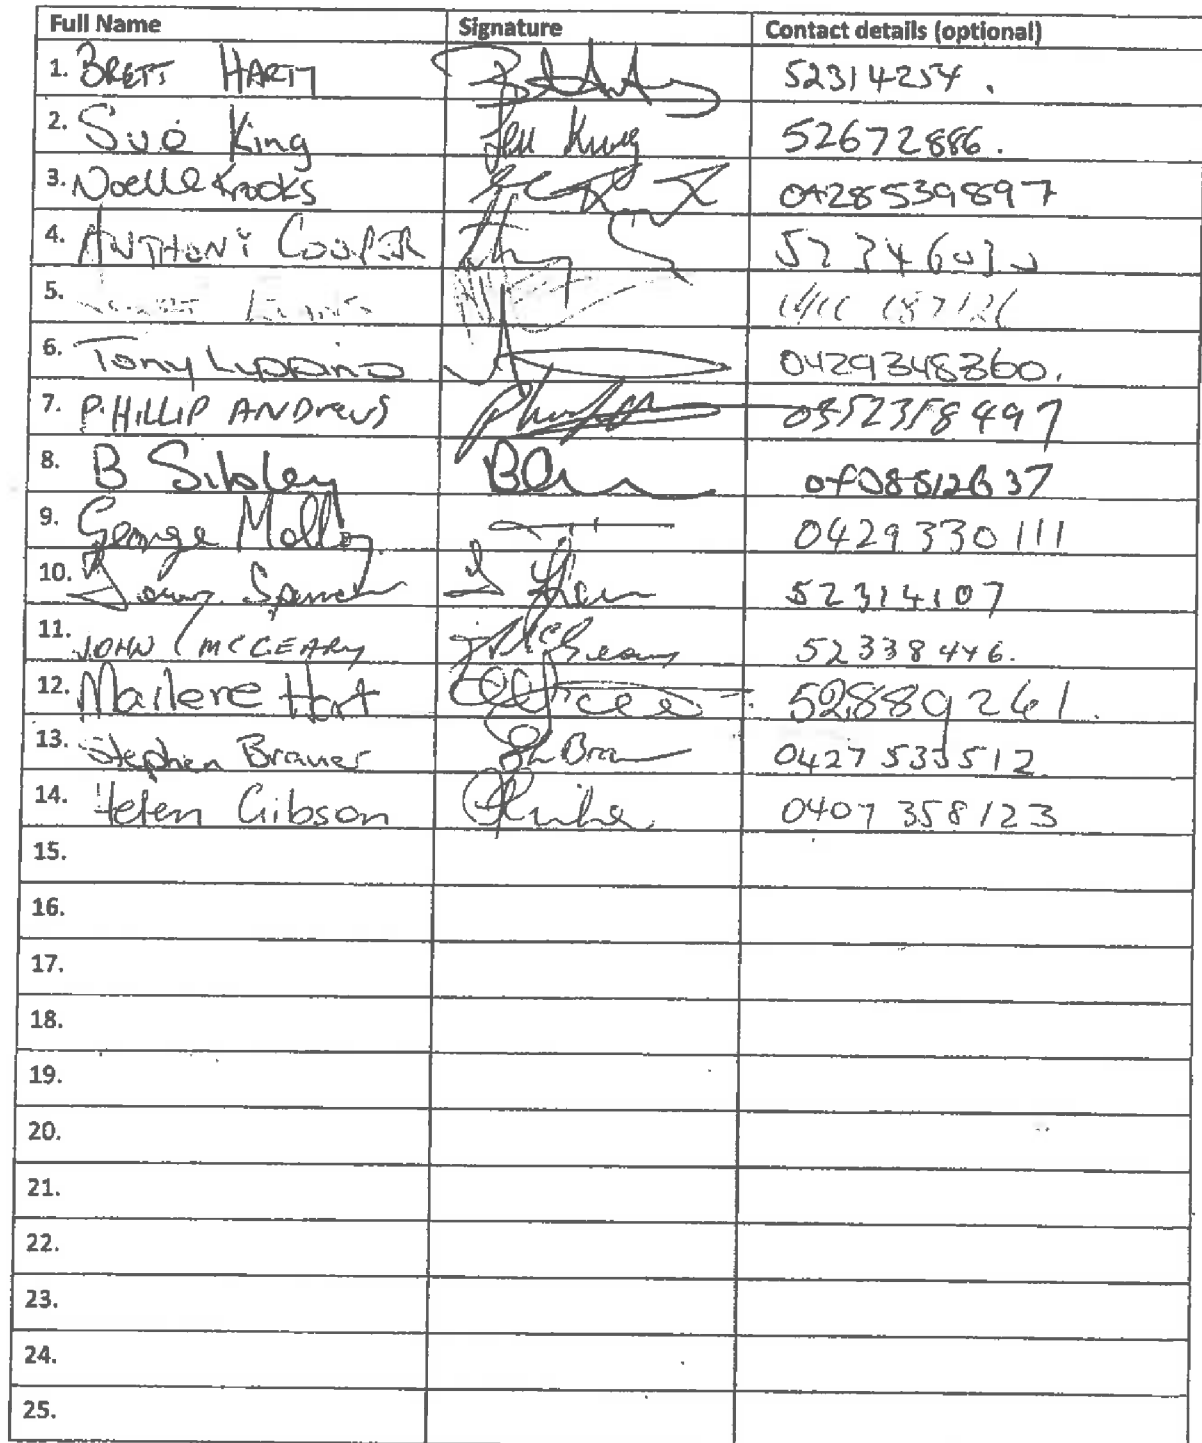 Full Name Signature Contact details (optional)
1. BRETT HART 52314254.
2. Sue King Sue King 52672886.
3. Noelle Krooks 0428539897
4. ANTHONY COOPER 52346030
5.
6. Tony Luppino 0429348360.
7. PHILLIP ANDREWS 0352358497
8. B Sibley 0408512637
9. George Molloy 0429330111
10. 52314107
11. JOHN MCGEARY J McGeary 52338446.
12. Mailene Hart 52889261.
13. Stephen Brauer 0427533512
14. Helen Gibson 0407 358123
15.
16.
17.
18.
19.
20.
21.
22.
23.
24.
25.